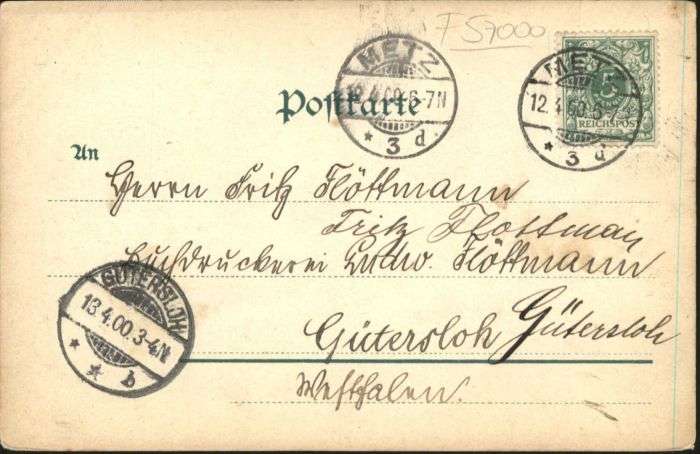 F 57000
METZ
12.4.00.6-7N
* 3 d
METZ
12.4.00.
* 3 d
5
REICHSPOST
Postkarte
An
Herrn Fritz Flöttmann
Fritz Flottman
Buchdruckerei Ludw. Flöttmann
Gütersloh Gütersloh
Westfalen.
GÜTERSLOH
13.4.00.3-4N
* * b